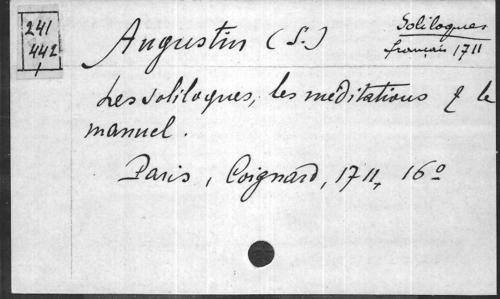 241
442
Augustin (S.)
Soliloques
français 1711
Les soliloques, les méditations & le
manuel.
Paris, Coignard, 1711, 16º